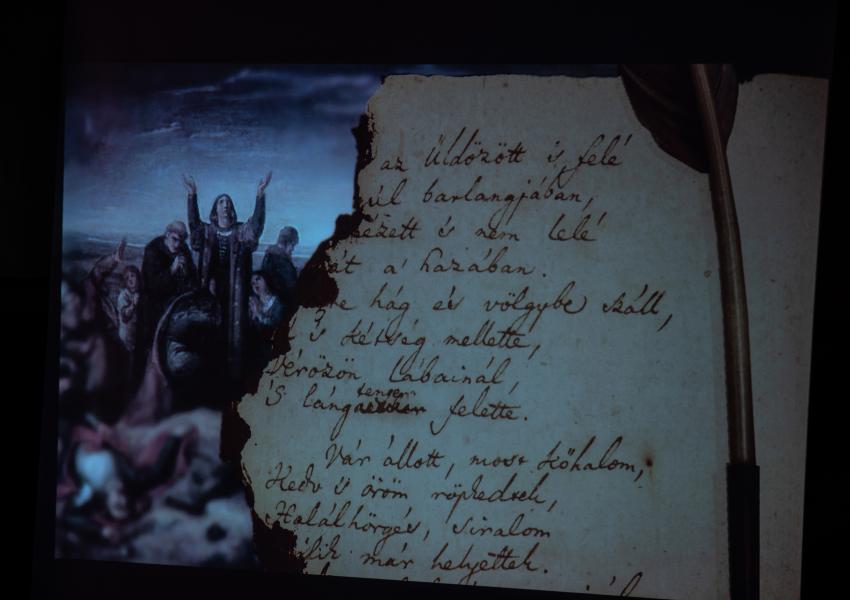 az Üldözött is felé
barlangjában,
és nem lelé
a' hazában.
hág és völgybe száll,
s kétség mellette,
Vérözön lábainál,
'S láng tenger felette.
Vár állott, most kőhalom,
Kedv és öröm röpkedtek,
Halálhörgés, siralom
már helyettek.